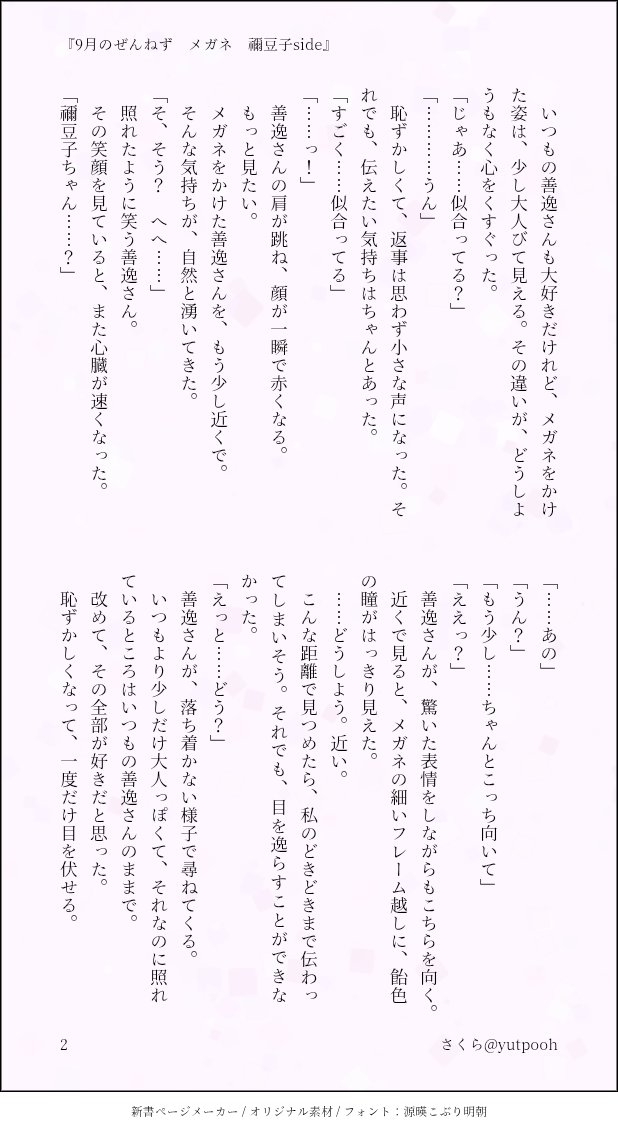 『9月のぜんねず　メガネ　禰豆子side』
　いつもの善逸さんも大好きだけれど、メガネをかけ
た姿は、少し大人びて見える。その違いが、どうしよ
うもなく心をくすぐった。
「じゃあ……似合ってる？」
「…………うん」
　恥ずかしくて、返事は思わず小さな声になった。そ
れでも、伝えたい気持ちはちゃんとあった。
「すごく……似合ってる」
「……っ！」
　善逸さんの肩が跳ね、顔が一瞬で赤くなる。
　もっと見たい。
　メガネをかけた善逸さんを、もう少し近くで。
　そんな気持ちが、自然と湧いてきた。
「そ、そう？　へへ……」
　照れたように笑う善逸さん。
　その笑顔を見ていると、また心臓が速くなった。
「禰豆子ちゃん……？」
「……あの」
「うん？」
「もう少し……ちゃんとこっち向いて」
「ええっ？」
　善逸さんが、驚いた表情をしながらもこちらを向く。
　近くで見ると、メガネの細いフレーム越しに、飴色
の瞳がはっきり見えた。
　……どうしよう。近い。
　こんな距離で見つめたら、私のどきどきまで伝わっ
てしまいそう。それでも、目を逸らすことができな
かった。
「えっと……どう？」
　善逸さんが、落ち着かない様子で尋ねてくる。
　いつもより少しだけ大人っぽくて、それなのに照れ
ているところはいつもの善逸さんのままで。
　改めて、その全部が好きだと思った。
　恥ずかしくなって、一度だけ目を伏せる。
2
さくら@yutpooh
新書ページメーカー / オリジナル素材 / フォント：源暎こぶり明朝